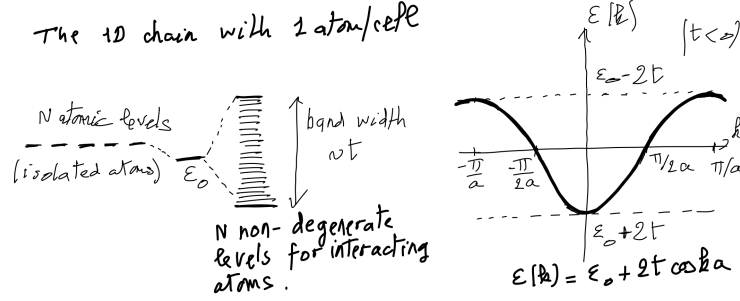 The 1D chain with 1 atom/cell
N atomic levels
(isolated atoms)
ε₀
band width
~t
N non-degenerate
levels for interacting
atoms.
ε(k)
(t<0)
ε₀-2t
k
-π/a
-π/2a
π/2a
π/a
ε₀+2t
ε(k) = ε₀+2t coska